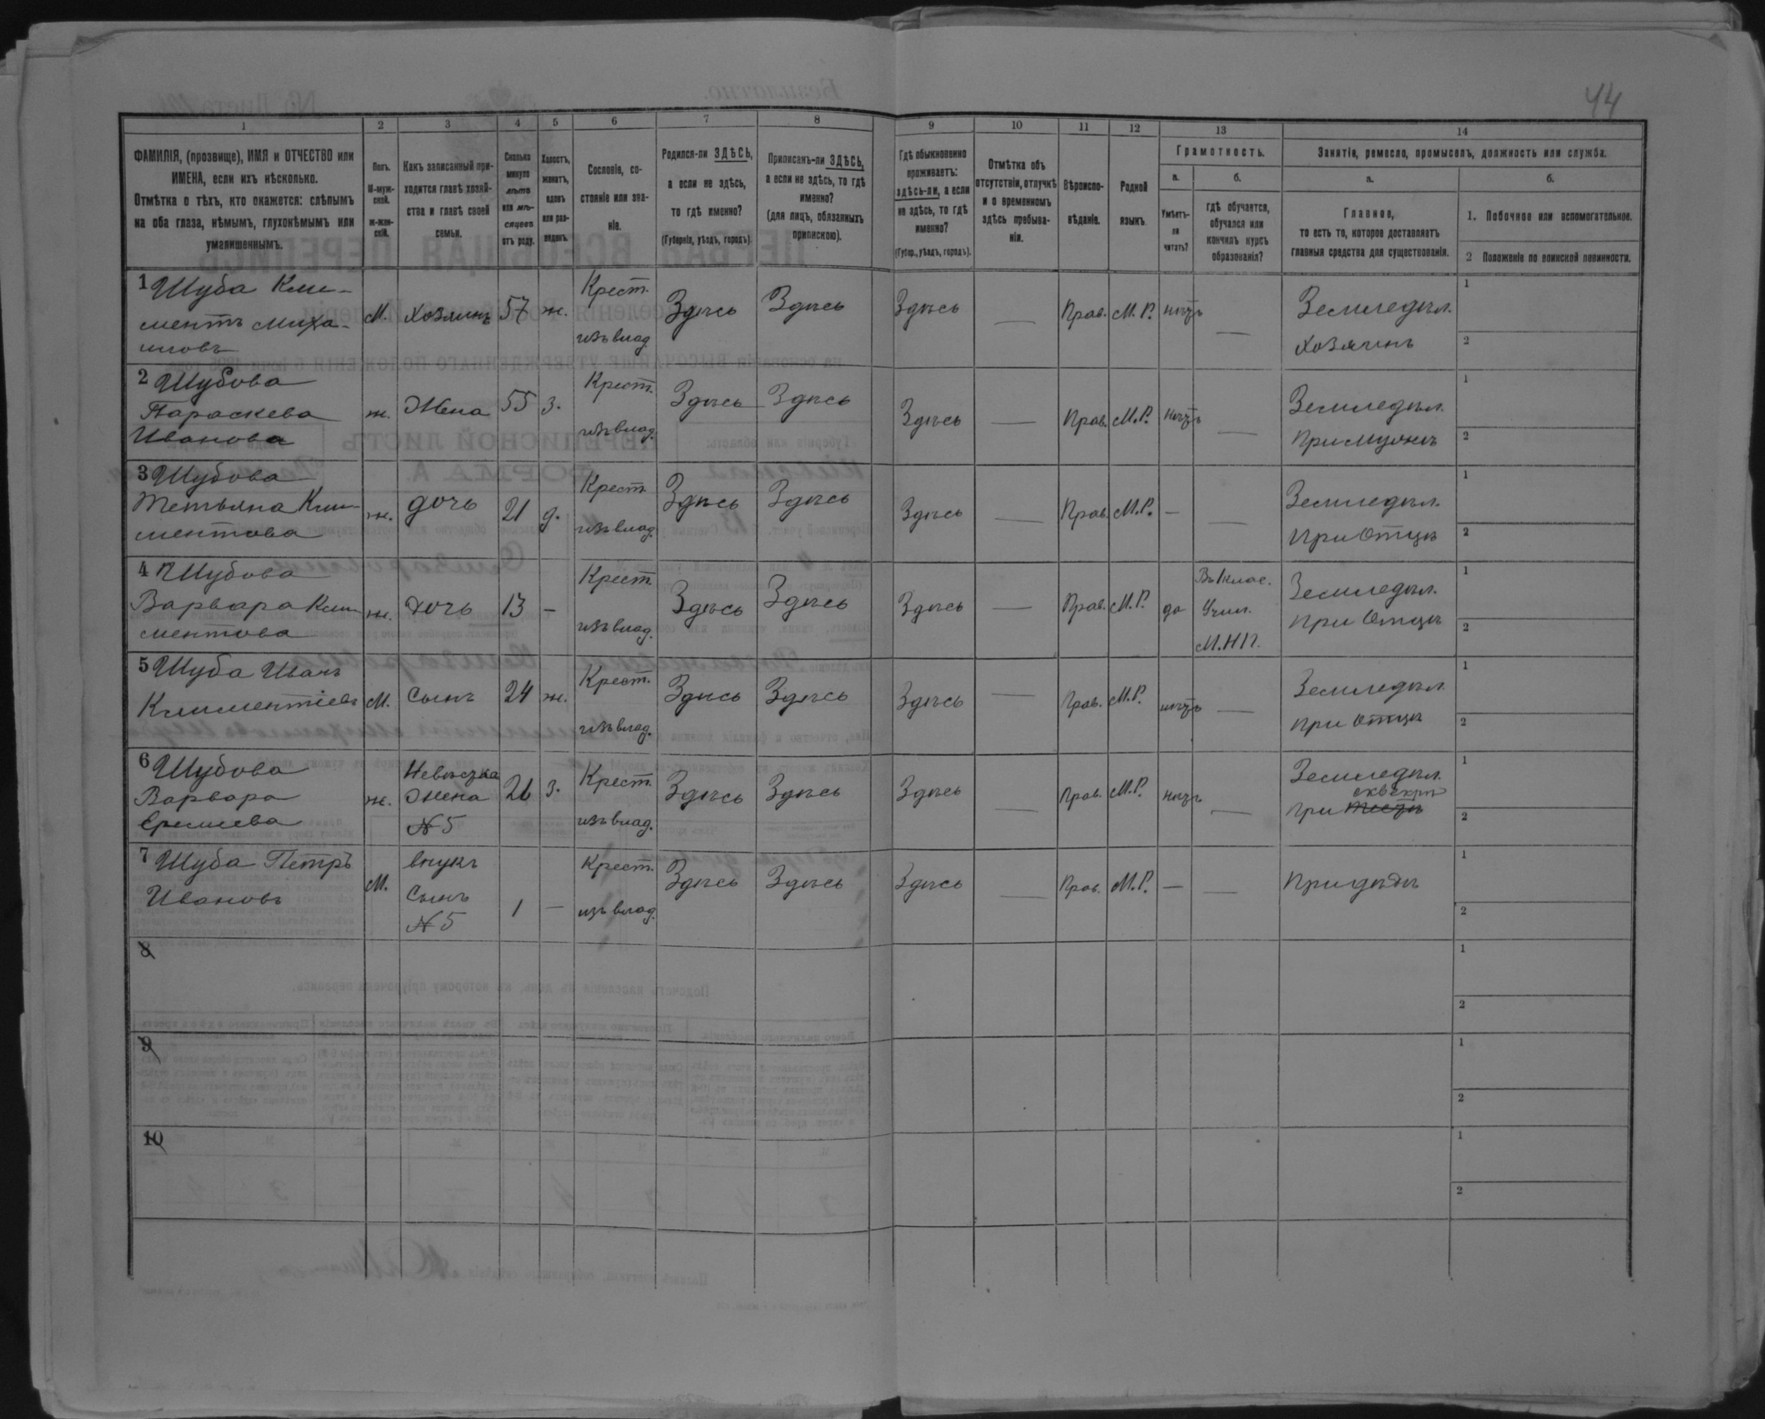 44
1 2 3 4 5 6 7 8 9 10 11 12 13 14
ФАМИЛІЯ, (прозвище), ИМЯ и ОТЧЕСТВО или
ИМЕНА, если ихъ нѣсколько.
Отмѣтка о тѣхъ, кто окажется: слѣпымъ
на оба глаза, нѣмымъ, глухонѣмымъ или
умалишеннымъ.
Полъ.
М-муж-
ской.
Ж-жен-
скій.
Какъ записанный при-
ходится главѣ хозяй-
ства и главѣ своей
семьи.
Сколько
минуло
лѣтъ
или мѣ-
сяцевъ
отъ роду.
Холостъ,
женатъ,
вдовъ
или раз-
веденъ.
Сословіе, со-
стояніе или зва-
ніе.
Родился-ли ЗДѢСЬ,
а если не здѣсь,
то гдѣ именно?
(Губернія, уѣздъ, городъ).
Приписанъ-ли ЗДѢСЬ,
а если не здѣсь, то гдѣ
именно?
(для лицъ, обязанныхъ
припискою).
Гдѣ обыкновенно
проживаетъ:
здѣсь-ли, а если
не здѣсь, то гдѣ
именно?
(Губер., уѣздъ, городъ).
Отмѣтка объ
отсутствіи, отлучкѣ
и о временномъ
здѣсь пребыва-
ніи.
Вѣроиспо-
вѣданіе.
Родной
языкъ.
Грамотность.
а.
Умѣетъ-
ли
читать?
б.
гдѣ обучается,
обучался или
кончилъ курсъ
образованія?
Занятіе, ремесло, промыселъ, должность или служба.
а.
Главное,
то есть то, которое доставляетъ
главныя средства для существованія.
б.
1. Побочное или вспомогательное.
2 Положеніе по воинской повинности.
1 Шуба Кли-
ментъ Михаи-
ловъ
М. хозяинъ 57 ж. Крест. изъ влад. Здѣсь Здѣсь Здѣсь — Прав. М.Р. нѣтъ — Земледѣл. хозяинъ 1 2
2 Шубова
Параскева
Иванова
ж. Жена 55 з. Крест. изъ влад. Здѣсь Здѣсь Здѣсь — Прав. М.Р. нѣтъ — Земледѣл. При мужѣ 1 2
3 Шубова
Тетьяна Кли-
ментова
ж. дочь 21 д. Крест. изъ влад. Здѣсь Здѣсь Здѣсь — Прав. М.Р. — — Земледѣл. При Отцѣ 1 2
4 Шубова
Варвара Кли-
ментова
ж. дочь 13 — Крест. изъ влад. Здѣсь Здѣсь Здѣсь — Прав. М.Р. да Учил. М.Н.П. Земледѣл. при Отцѣ 1 2
5 Шуба Иванъ
Климентіевъ
М. Сынъ 24 ж. Крест. изъ влад. Здѣсь Здѣсь Здѣсь — Прав. М.Р. нѣтъ — Земледѣл. при отцѣ 1 2
6 Шубова
Варвара
ж. Невѣстка Жена №5 26 з. Крест. изъ влад. Здѣсь Здѣсь Здѣсь — Прав. М.Р. нѣтъ — Земледѣл. при свекрѣ 1 2
7 Шуба Петръ
Ивановъ
М. внукъ Сынъ №5 1 — Крест. изъ влад. Здѣсь Здѣсь Здѣсь — Прав. М.Р. — — При дѣдѣ 1 2
8 1 2
9 1 2
10 1 2